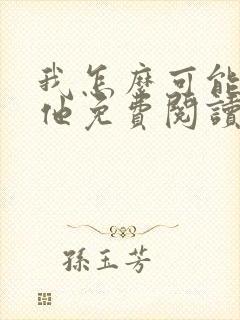 我怎麼可能
他免費閱讀
孫玉芳